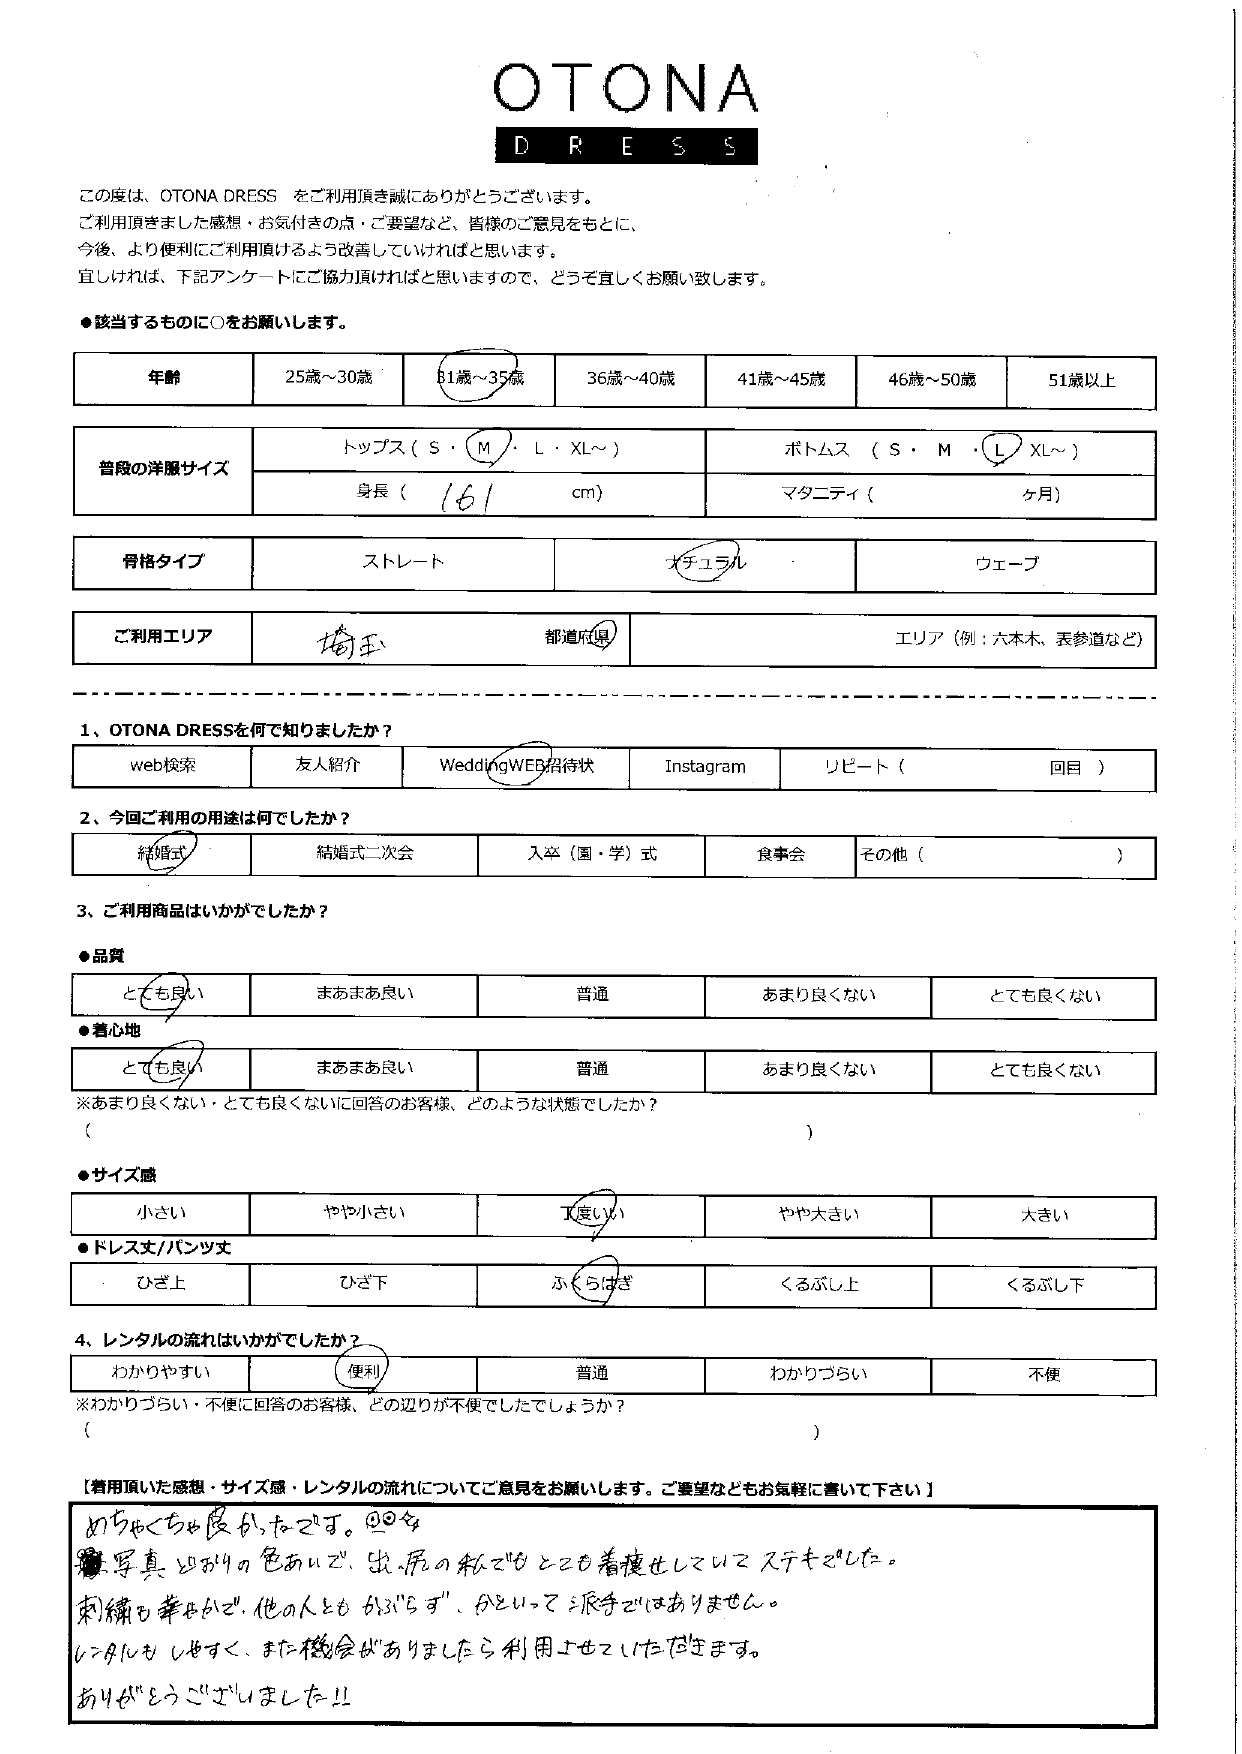 OTONA
DRESS
この度は、OTONA DRESS をご利用頂き誠にありがとうございます。
ご利用頂きました感想・お気付きの点・ご要望など、皆様のご意見をもとに、
今後、より便利にご利用頂けるよう改善していければと思います。
宜しければ、下記アンケートにご協力頂ければと思いますので、どうぞ宜しくお願い致します。
●該当するものに○をお願いします。
年齢 25歳～30歳 31歳～35歳 36歳～40歳 41歳～45歳 46歳～50歳 51歳以上
普段の洋服サイズ トップス ( S ・ M ・ L ・ XL～ ) ボトムス ( S ・ M ・ L XL～ )
身長 ( 161 cm) マタニティ ( ヶ月)
骨格タイプ ストレート ナチュラル ウェーブ
ご利用エリア 埼玉 都道府県 エリア（例：六本木、表参道など）
1、OTONA DRESSを何で知りましたか？
web検索 友人紹介 WeddingWEB招待状 Instagram リピート ( 回目 )
2、今回ご利用の用途は何でしたか？
結婚式 結婚式二次会 入卒（園・学）式 食事会 その他 ( )
3、ご利用商品はいかがでしたか？
●品質
とても良い まあまあ良い 普通 あまり良くない とても良くない
●着心地
とても良い まあまあ良い 普通 あまり良くない とても良くない
※あまり良くない・とても良くないに回答のお客様、どのような状態でしたか？
( )
●サイズ感
小さい やや小さい 丁度いい やや大きい 大きい
●ドレス丈/パンツ丈
ひざ上 ひざ下 ふくらはぎ くるぶし上 くるぶし下
4、レンタルの流れはいかがでしたか？
わかりやすい 便利 普通 わかりづらい 不便
※わかりづらい・不便に回答のお客様、どの辺りが不便でしたでしょうか？
( )
【着用頂いた感想・サイズ感・レンタルの流れについてご意見をお願いします。ご要望などもお気軽に書いて下さい】
めちゃくちゃ良かったです。
写真どおりの色あいで、出っ尻の私でもとても着痩せしていてステキでした。
刺繍も華やかで、他の人ともかぶらず、かといって派手ではありません。
レンタルもしやすく、また機会がありましたら利用させていただきます。
ありがとうございました!!